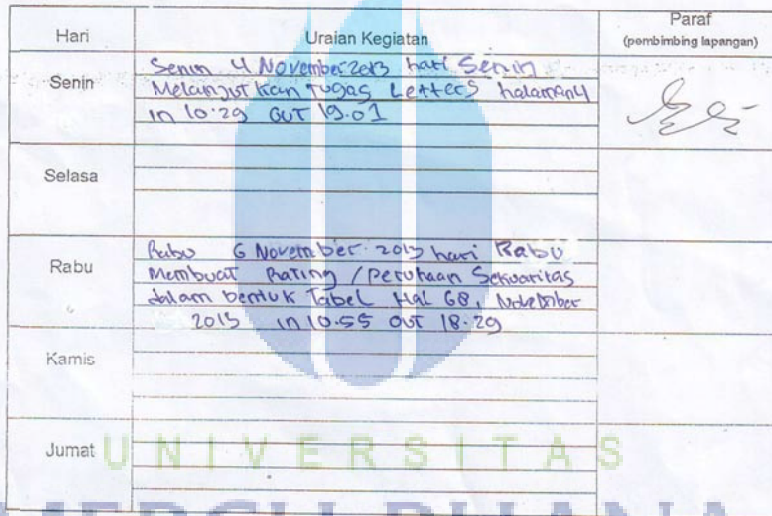 Hari Uraian Kegiatan Paraf
(pembimbing lapangan)
Senin
Senin 4 November 2013 hari Senin
Melanjutkan Tugas Letters halaman 4
in 10:29 OUT 19.01
Selasa
Rabu
Rabu 6 November 2013 hari Rabu
Membuat Rating / Sekuaritas
dalam bentuk Tabel Hal 68,
2013 in 10.55 OUT 18.29
Kamis
Jumat
UNIVERSITAS
MERCU BUANA